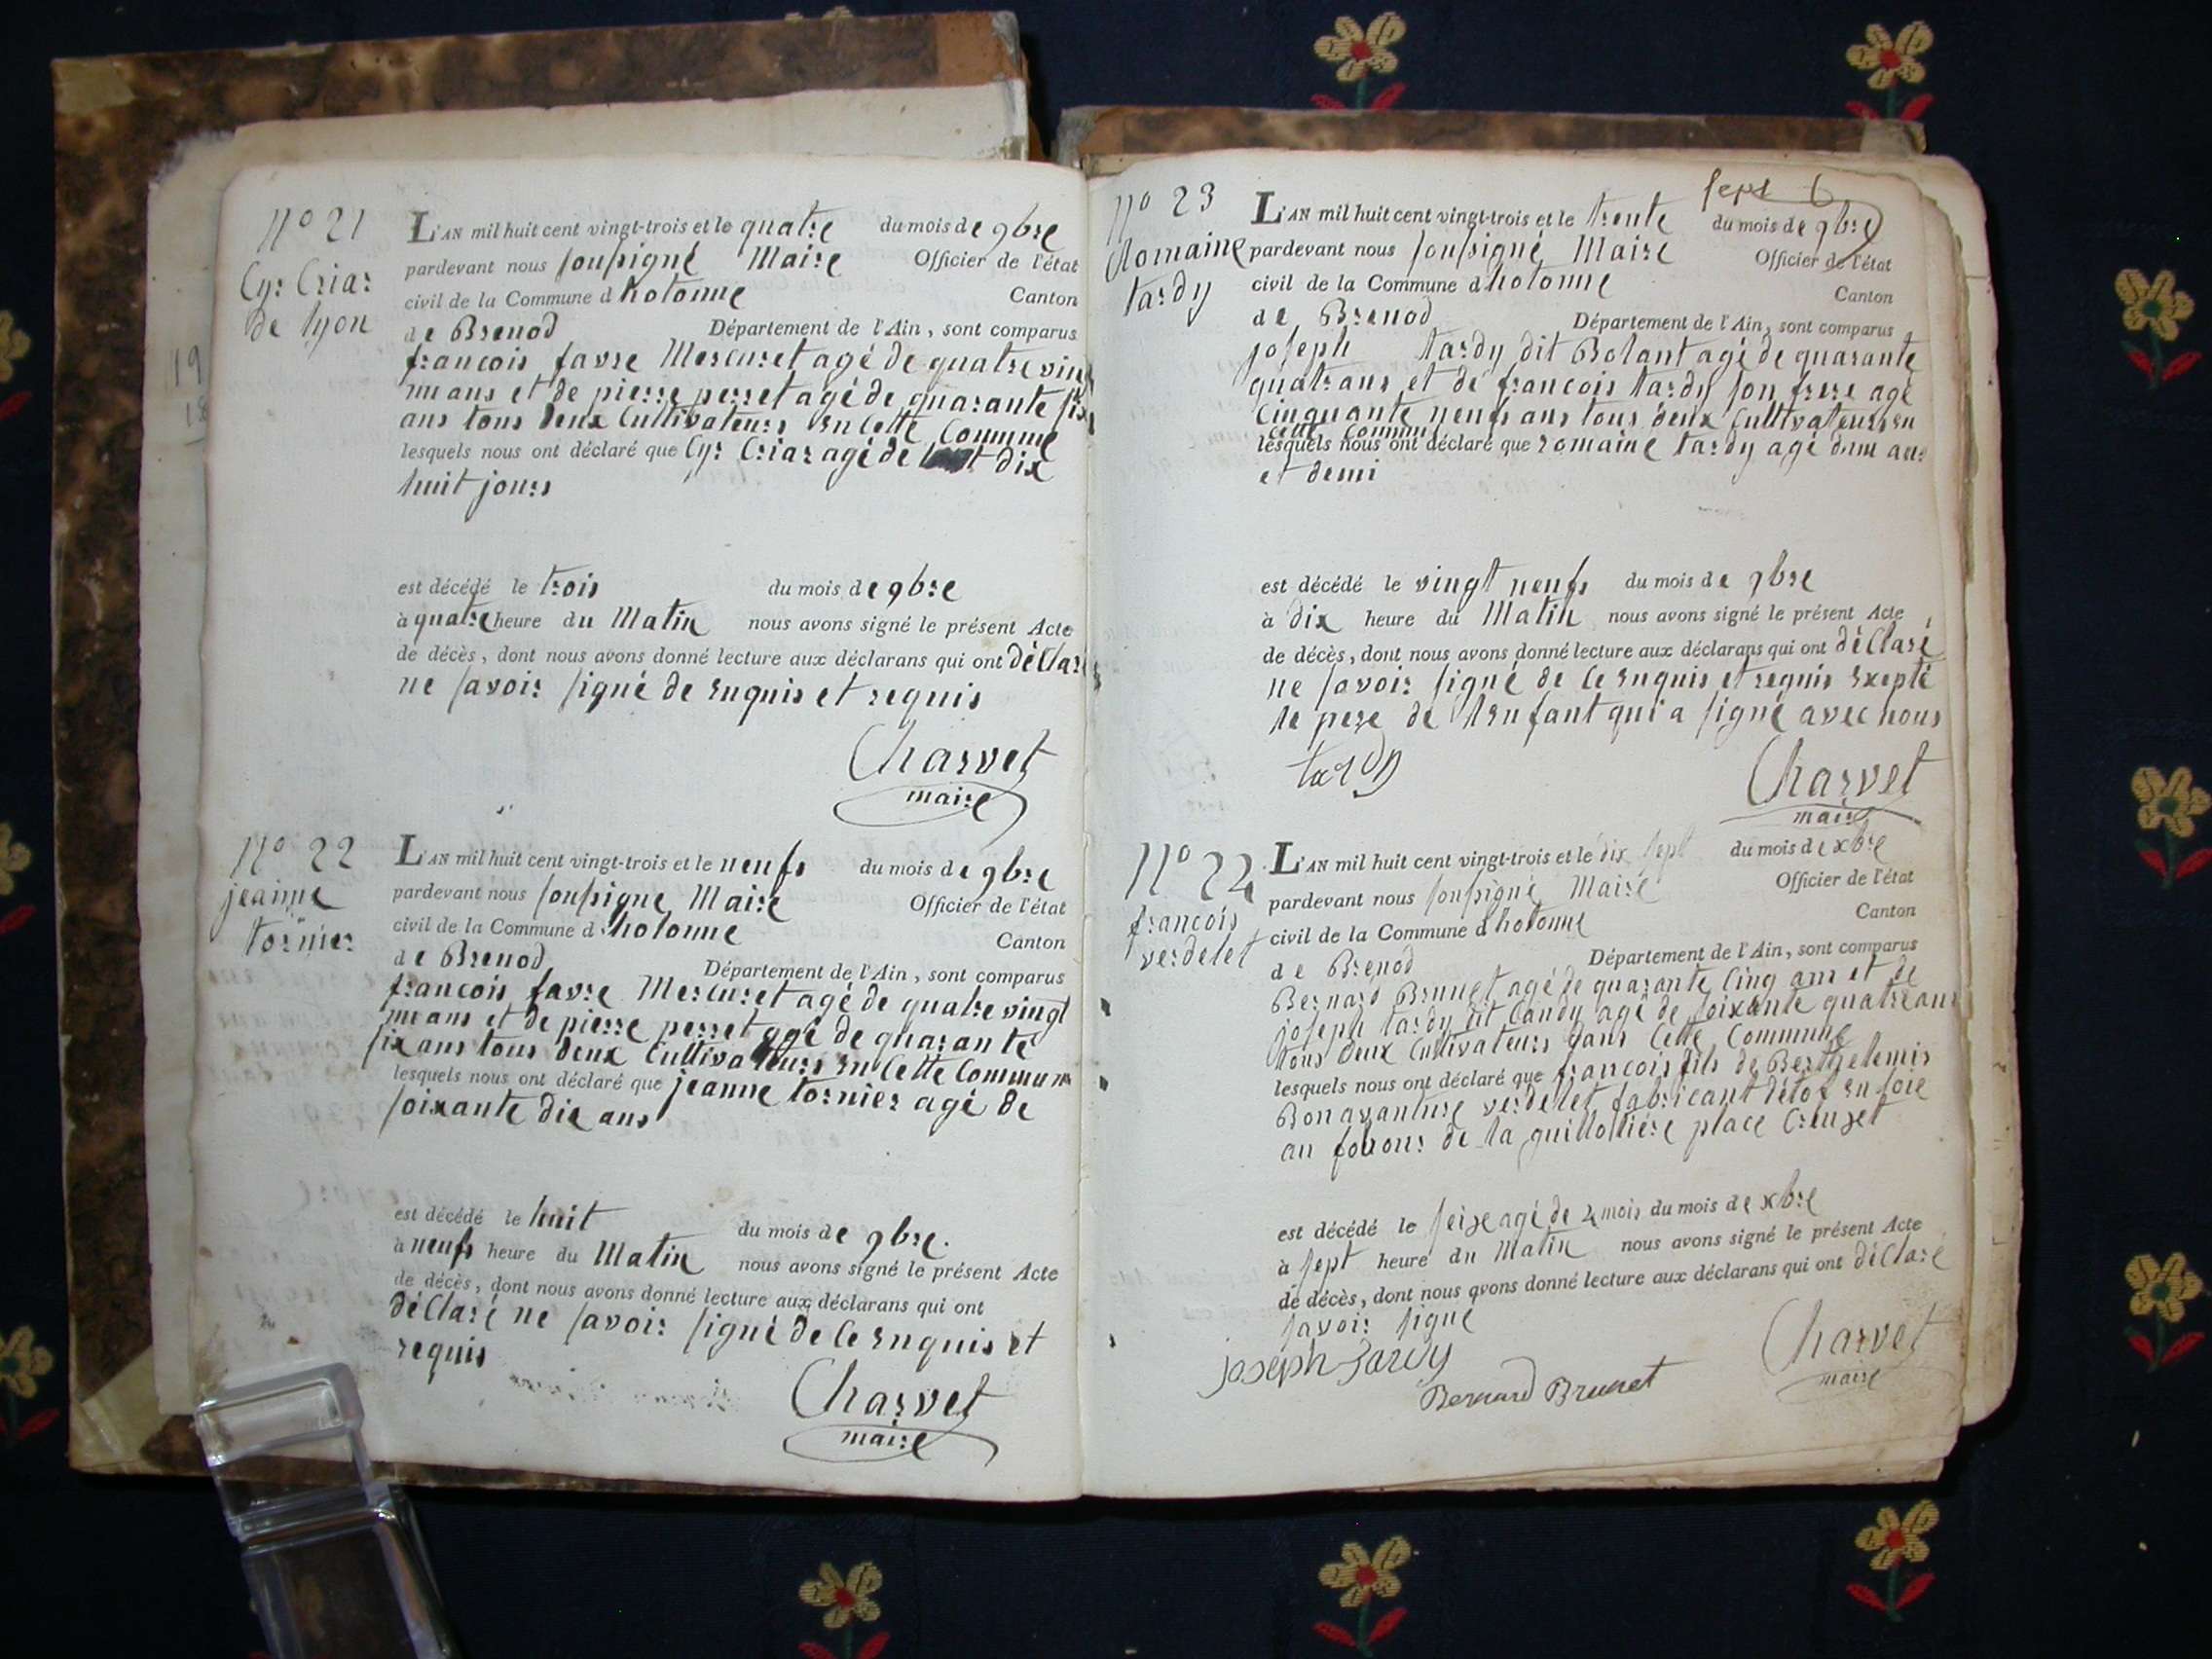 19
18
N° 21
Cyr Criar
de lyon
L'AN mil huit cent vingt-trois et le quatre du mois de 9bre
pardevant nous soussigné Maire Officier de l'état
civil de la Commune d hotonne Canton
de Brenod Département de l'Ain, sont comparus
francois favre Mercuret agé de quatre vin
un ans et de pierre perret agé de quarante six
ans tous deux Cultivateurs en Cette Commune
lesquels nous ont déclaré que Cyr Criar agé de dix
huit jours
est décédé le trois du mois de 9bre
à quatre heure du Matin nous avons signé le présent Acte
de décès, dont nous avons donné lecture aux déclarans qui ont déClaré
ne savoir signé de enquis et requis
Charvet
maire
N° 22
jeanne
tornier
L'AN mil huit cent vingt-trois et le neufs du mois de 9bre
pardevant nous soussigne Maire Officier de l'état
civil de la Commune d hotonne Canton
de Brenod Département de l'Ain, sont comparus
francois favre Mercuret agé de quatre vingt
un ans et de pierre perret agé de quarante
six ans tous deux Cultivateurs en Cette Commune
lesquels nous ont déclaré que jeanne tornier agé de
soixante dix ans
est décédé le huit du mois de 9bre.
à neufs heure du Matin nous avons signé le présent Acte
de décès, dont nous avons donné lecture aux déclarans qui ont
déClaré ne savoir signé de Ce enquis et
requis
Charvet
maire
sept 6
N° 23
Romaine
tardy
L'AN mil huit cent vingt-trois et le trente du mois de 9bre
pardevant nous soussigné Maire Officier de l'état
civil de la Commune d hotonne Canton
de Brenod Département de l'Ain, sont comparus
joseph tardy dit Bolant agé de quarante
quatr ans et de francois tardy son frere agé
Cinquante neufs ans tous deux Cultivateurs en
Cette Commune
lesquels nous ont déclaré que romaine tardy agé dun ans
et demi
est décédé le vingt neufs du mois de 9bre
à dix heure du Matin nous avons signé le présent Acte
de décès, dont nous avons donné lecture aux déclarans qui ont déClaré
ne savoir signé de Ce enquis et requis exepté
le pere de lenfant qui a signé avec nous
tardy
Charvet
maire
N° 24
francois
verdelet
L'AN mil huit cent vingt-trois et le dix sept du mois de xbre
pardevant nous soussigné Maire Officier de l'état
civil de la Commune d hotonne Canton
de Brenod Département de l'Ain, sont comparus
Bernard Brunet agé de quarante Cinq ans et de
joseph tardy dit Candy agé de soixante quatre ans
tous deux Cultivateurs dans Cette Commune
lesquels nous ont déclaré que francois fils de Berthelemis
Bonavanture verdelet fabricant détof en soie
au fobour de la guillottière place Creuzet
est décédé le seize agé de 4 mois du mois de xbre
à sept heure du Matin nous avons signé le présent Acte
de décès, dont nous avons donné lecture aux déclarans qui ont déClaré
savoir signé
joseph Tardy
Bernard Brunet
Charvet
maire